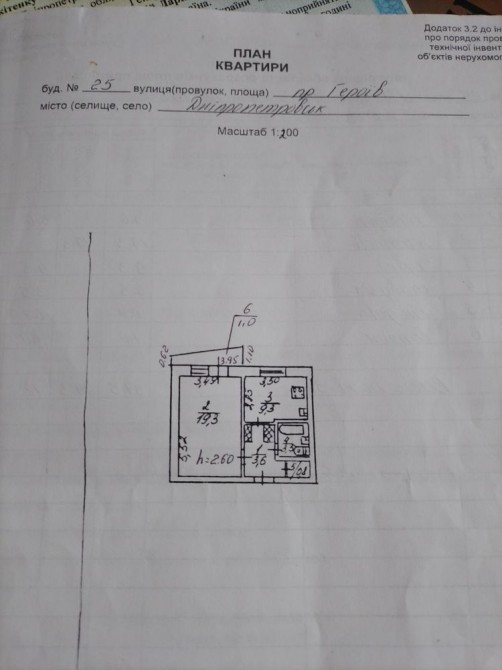 їтенку
України
Дарвіна,
Додаток 3.2 до Ін
про порядок пров
технічної інвент
об'єктів нерухомос
ПЛАН
КВАРТИРИ
буд. № 25 вулиця(провулок, площа) пр Героїв
місто (селище, село) Дніпропетровськ
Масштаб 1:200
6
1,0
0,60
3.95
1,10
3,45
3,50
2
19,3
2,75
3
9,3
5,52
h=2.60
1
3,6
4